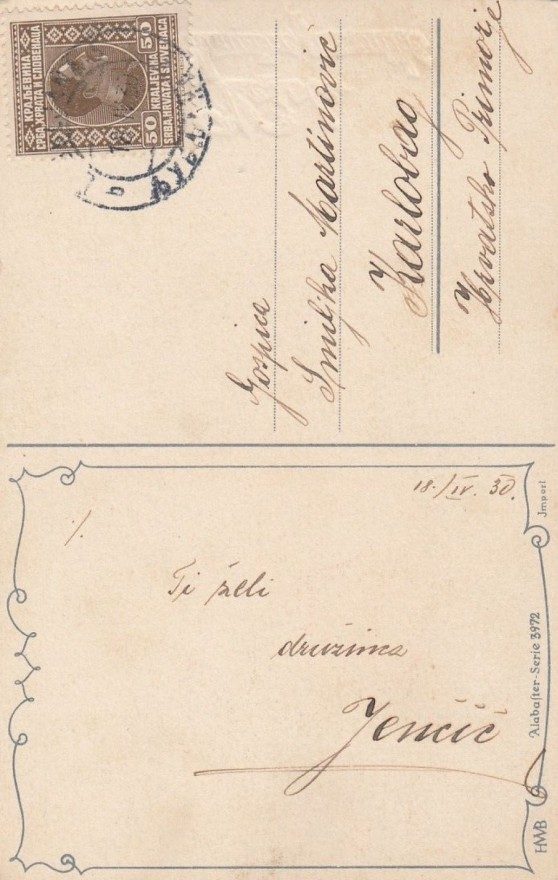 КРАЉЕВИНА
СРБА, ХРВАТА И СЛОВЕНАЦА
50
50
KRALJEVINA
SRBA, HRVATA I SLOVENACA
Gospica
Smiljka Martinović
Karlobag
Hrvatsko Primorje
18./IV. 30.
/.
Ti želi
družina
Jenčič
Import
Alabaſter-Serie 3972
HWB